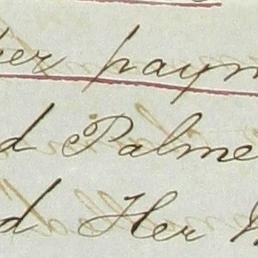 per paym
d Palme
d Her